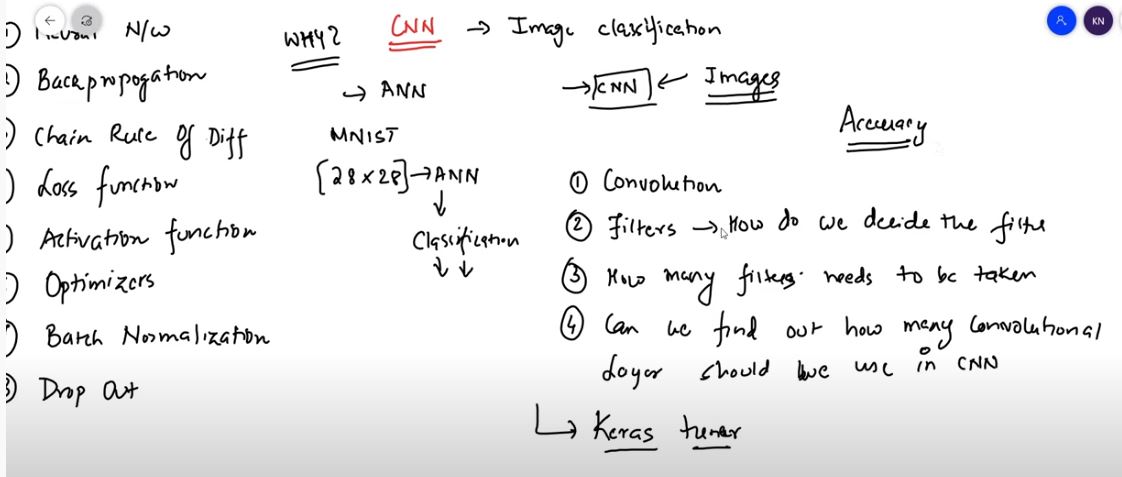 ① Neural N/W
② Backpropogation
③ Chain Rule Of Diff
④ Loss function
⑤ Activation function
⑥ Optimizers
⑦ Batch Normalization
⑧ Drop Out
WHY? CNN → Image classification
→ ANN
MNIST
[28×28] → ANN
↓
Classification
↓ ↓
→ CNN ← Images
Accuracy
① Convolution
② Filters → How do we decide the filte
③ How many filters needs to be taken
④ Can we find out how many Convolutional
Layer should we use in CNN
↳ Keras tuner
KN